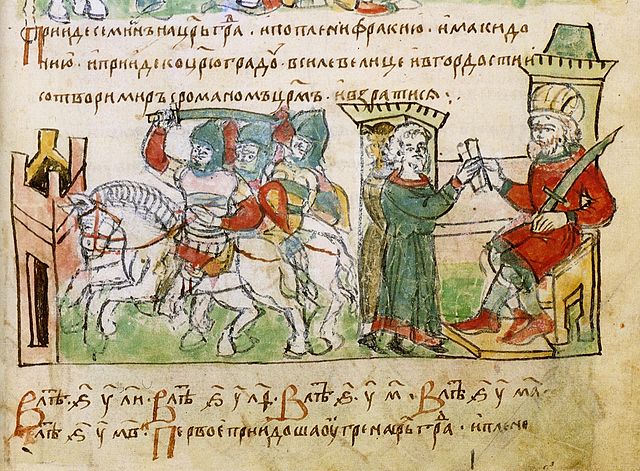 Приидесемиѡнъ нацр҃ьгра . ипопленифракию . имакидо
нию . иприидекоцр҃юградꙋ . всилевелице ивгордости и
сотворимиръ сроманомъ цр҃мъ . ивъзратися :·
Влѣт . ѕ҃ у л҃и . Влѣт ѕ҃ у л҃ѳ . Влѣт . ѕ҃ . у м҃ . Влѣт ѕ҃ у м҃а .
Влѣт ѕ҃ у м҃в . Первоеприидошаоугренацр҃ьгра . иплене